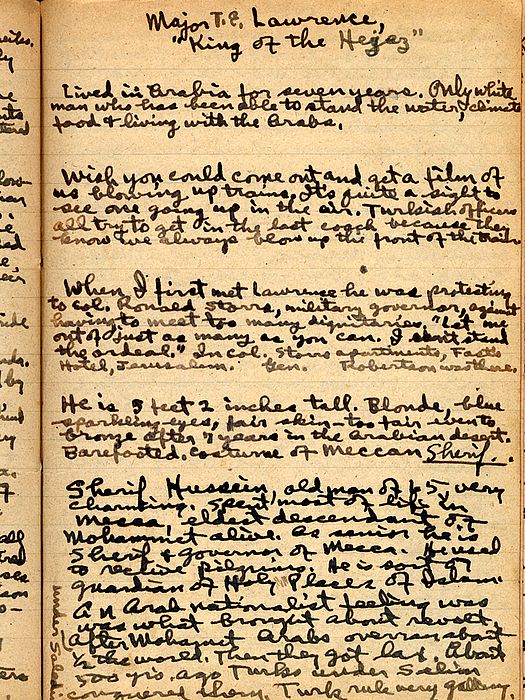 Major T.E. Lawrence,
"King of the Hejaz"
Lived in Arabia for seven years. Only white
man who has been able to stand the water, climate
food & living with the Arabs.
Wish you could come out and get a film of
us blowing up trains. It's quite a sight to
see one going up in the air. Turkish officers
all try to get in the last coach because they
know we always blow up the front of the train.
When I first met Lawrence he was protesting
to Col. Ronald Storrs, military governor, against
having to meet too many dignitaries. "Let me
out of just as many as you can. I can't stand
the ordeal." In Col. Storrs apartments, Fast's
Hotel, Jerusalem. Gen. Robertson was there.
He is 5 feet 2 inches tall. Blonde, blue
sparkling eyes, fair skin - too fair even to
bronze after 7 years in the Arabian desert.
Barefooted. Costume of Meccan Sherif.
Sherif Hussein, old man of 65, very
charming. Spent most of life in
Mecca, eldest descendant of
Mohammet alive. As senior he is
Sherif & governor of Mecca. He used
to receive pilgrims. He is sort of
guardian of Holy Places of Islam.
An Arab nationalist feeling was
was what brought about revolt.
After Mohamet Arabs overran about
1/2 the world. Then they got lax. About
500 yrs. ago Turks under Selim
conquered them. Turk rule very galling
under Selim